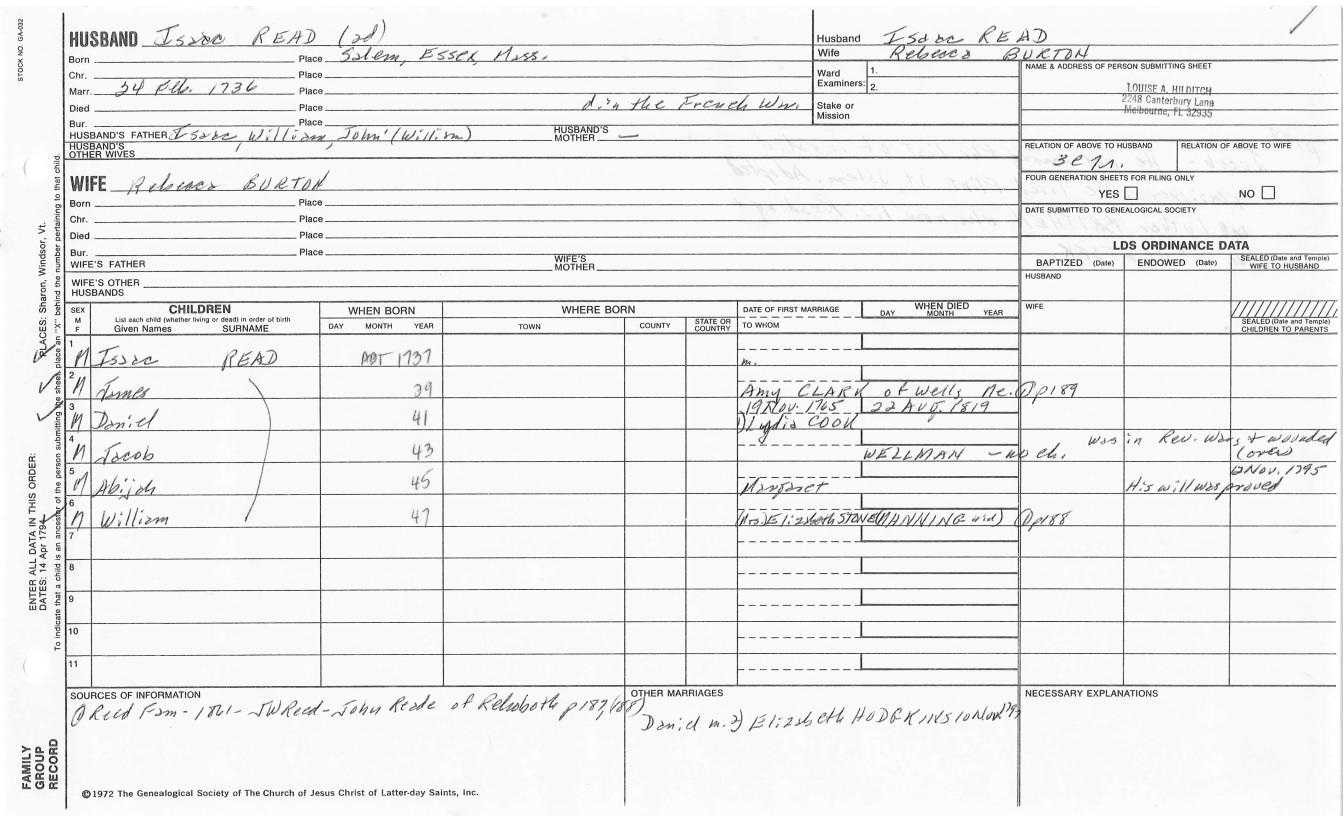 STOCK NO. GA-032
HUSBAND Isaac READ (2d)
Born Place Salem, Essex, Mass.
Chr. Place
Marr. 24 Feb. 1736 Place
Died Place d. in the French War.
Bur. Place
HUSBAND'S FATHER Isaac, William, John' (William) HUSBAND'S MOTHER —
HUSBAND'S OTHER WIVES
WIFE Rebecca BURTON
Born Place
Chr. Place
Died Place
Bur. Place
WIFE'S FATHER WIFE'S MOTHER
WIFE'S OTHER HUSBANDS
Husband Isaac READ
Wife Rebecca BURTON
Ward Examiners: 1.
2.
Stake or Mission
NAME & ADDRESS OF PERSON SUBMITTING SHEET
LOUISE A. HILDITCH
2248 Canterbury Lane
Melbourne, FL 32935
RELATION OF ABOVE TO HUSBAND RELATION OF ABOVE TO WIFE
FOUR GENERATION SHEETS FOR FILING ONLY
YES NO
DATE SUBMITTED TO GENEALOGICAL SOCIETY
LDS ORDINANCE DATA
BAPTIZED (Date) ENDOWED (Date) SEALED (Date and Temple) WIFE TO HUSBAND
HUSBAND
WIFE
SEALED (Date and Temple) CHILDREN TO PARENTS
SEX M F
CHILDREN
List each child (whether living or dead) in order of birth
Given Names SURNAME
WHEN BORN
DAY MONTH YEAR
WHERE BORN
TOWN COUNTY STATE OR COUNTRY
DATE OF FIRST MARRIAGE
TO WHOM
WHEN DIED
DAY MONTH YEAR
1 M Isaac READ ABT 1737 m.
2 M James 39 Amy CLARK of Wells Me. ① p189
3 M Daniel 41 19 Nov. 1765 22 AUG. 1819
1) Lydia COOK
4 M Jacob 43 WELLMAN – no ch. was in Rev. War, & wounded (over)
5 M Abijah 45 Margaret 12 Nov. 1795
His will was proved
6 M William 47 (Mrs) Elizabeth STONE (MANNING wid) ① p188
7
8
9
10
11
SOURCES OF INFORMATION
① Reed Fam - 1861 - JW Reed - John Reade of Rehoboth p 187, (188)
OTHER MARRIAGES
Daniel m. 2) Elizabeth HODGKINS 10 Nov
NECESSARY EXPLANATIONS
©1972 The Genealogical Society of The Church of Jesus Christ of Latter-day Saints, Inc.
FAMILY GROUP RECORD
ENTER ALL DATA IN THIS ORDER:
DATES: 14 Apr 1794
PLACES: Sharon, Windsor, Vt.
To indicate that a child is an ancestor of the person submitting the sheet, place an "X" behind the number pertaining to that child.